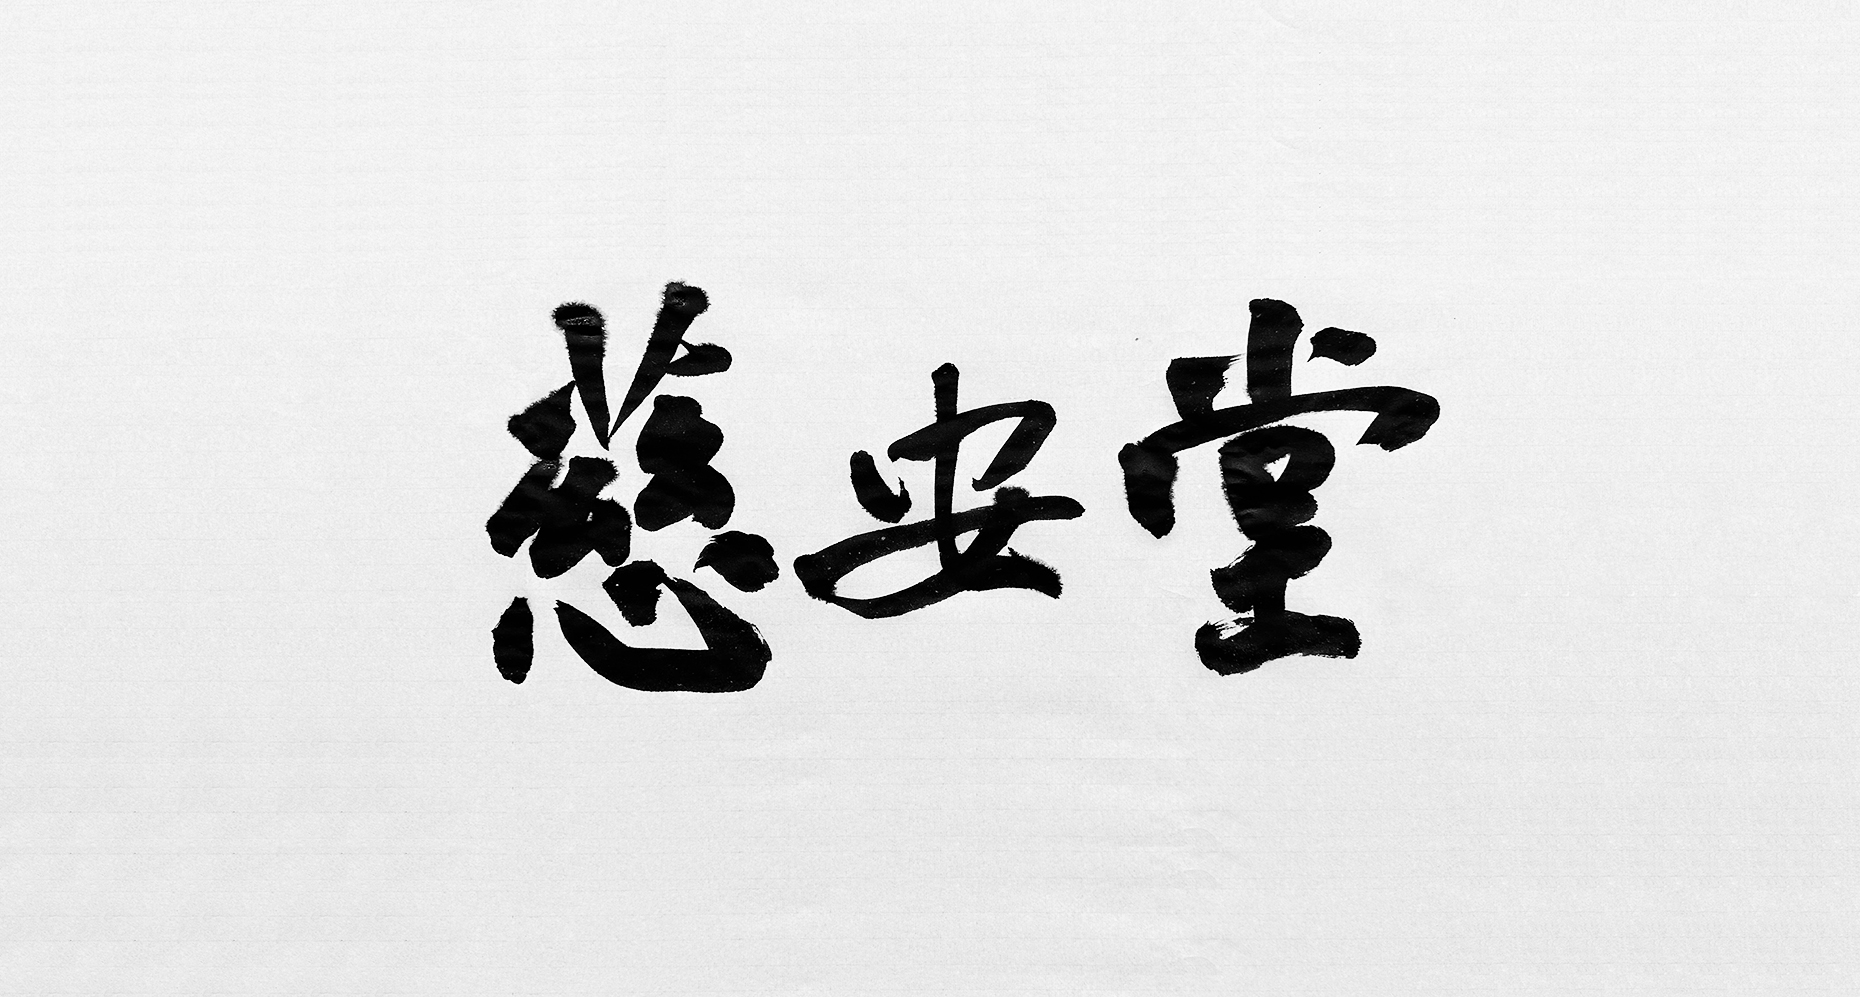 慈安堂